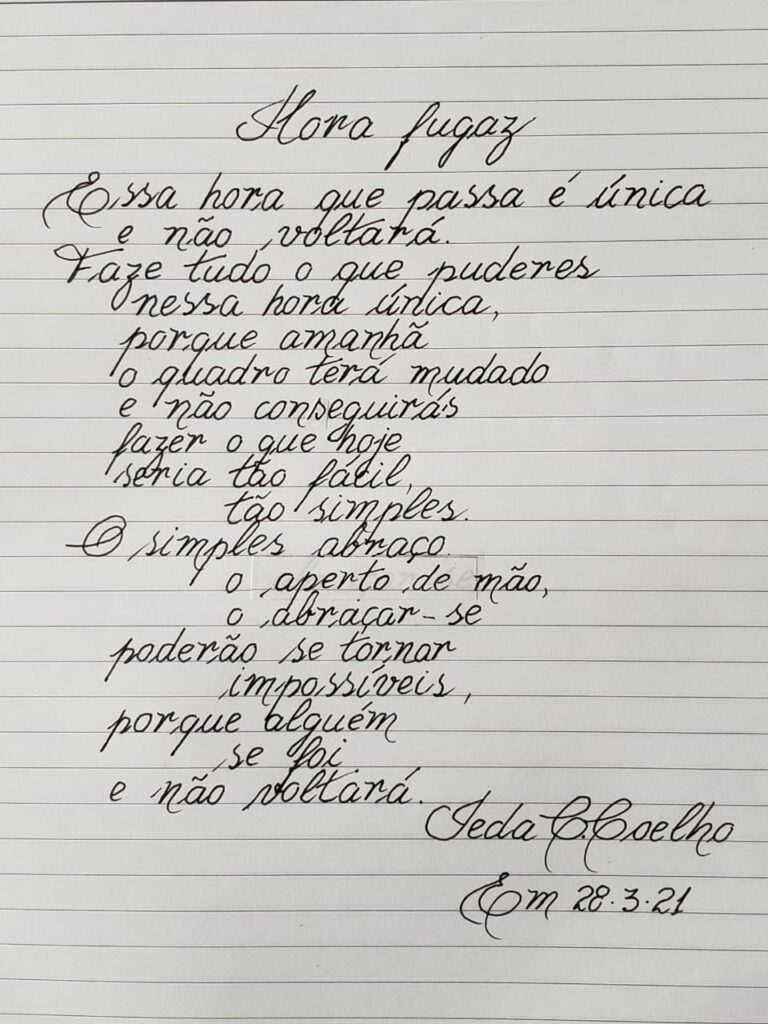 Hora fugaz
Essa hora que passa é única
e não voltará.
Faze tudo o que puderes
nessa hora única,
porque amanhã
o quadro terá mudado
e não conseguirás
fazer o que hoje
seria tão fácil,
tão simples.
O simples abraço.
o aperto de mão,
o abraçar-se
poderão se tornar
impossíveis,
porque alguém
se foi
e não voltará.
Ieda C. Coelho
Em 28.3.21